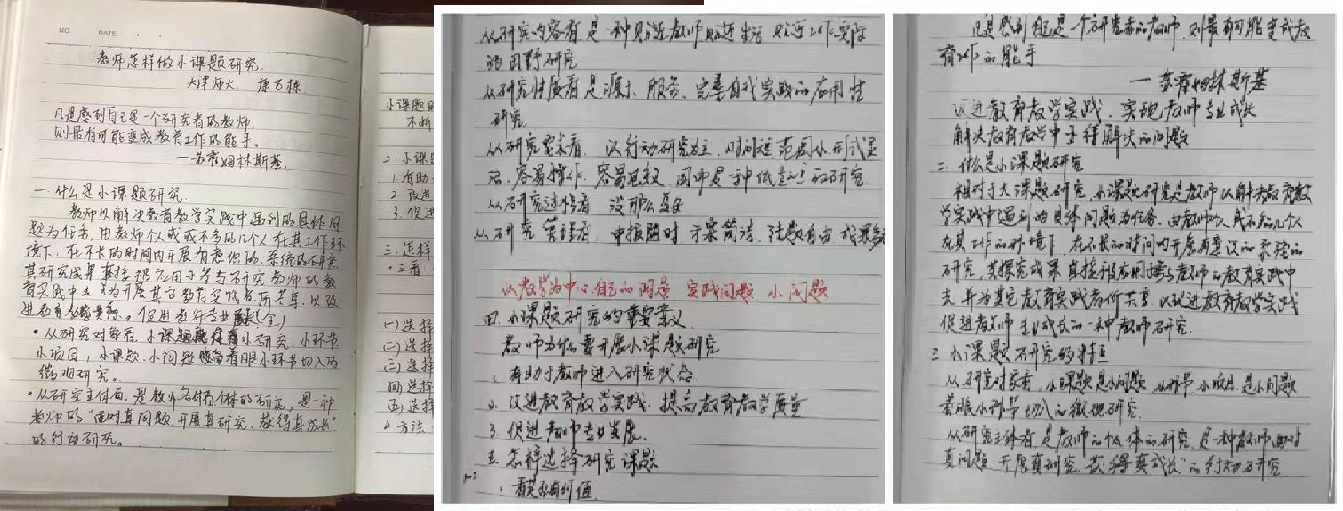 DATE
教师怎样做小课题研究
凡是感到自己是一个研究者的教师,
则最有可能变成教育工作的能手。
—苏霍姆林斯基
一. 什么是小课题研究.
教师以解决教育教学实践中遇到的具体问
题为任务, 由教师个人或不多的几个人在其工作环
境下, 在不长的时间内开展有意识的、系统的
其研究成果直接
促进教师专业
• 从研究对象看, 小研究, 小环节
小项目, 小课题, 小问题 着眼小环节切入的
微观研究。
• 从研究主体看, 是教师 个体的研究, 是一种
教师的"面对真问题 开展真研究, 获得真成长"
的行动研究。
小课题
不断
二. 小课
1. 有助
2. 改进
3. 促进
三. 怎样
(一) 选择
(二) 选择
(三) 选择
(四) 选择
(五) 选择
方法
从研究内容看 是一种贴近教师 贴近生活 贴近工作实际
的田野研究
从研究性质看 是源于、服务、完善自我实践的应用性
研究
从研究要求看, 以行动研究为主, 问题范围小 形式灵
活, 容易操作, 容易见效,
从研究过程看 没那么复杂
从研究管理看, 方案简洁,
中心 自己的问题 实践问题 小问题
四. 小课题研究的重要意义
教师为何要开展小课题研究
1. 有助于教师进入研究状态
2. 改进教育教学实践, 提高教育教学质量
3. 促进教师专业发展.
五. 怎样选择研究课题
1. 看是否有价值
凡是感到自己是一个研究者的教师, 则最有可能变成教
育工作的能手
—苏霍姆林斯基
改进教育教学实践, 实现教师专业成长
解决教育教学中 解决的问题
二. 什么是小课题研究
相对于大课题研究, 小课题研究是教师以解决教育教
学实践中遇到的具体问题为任务, 由教师个人或不多的几个人
在其工作的环境下, 在不长的时间内开展有意识的系统的
研究, 其研究成果直接 应用于参与教师的教育实践中
去, 并为其它教育实践者所共享, 以改进教育教学实践
促进教师专业成长的一种教师研究.
三. 小课题研究的特征
从研究对象看, 小课题是小问题 小环节 小项目, 是小问题
着眼小环节切入的微观研究.
从研究主体看 是教师的个体的研究, 是一种教师"面对
真问题, 开展真研究, 获得真成长"的行动研究